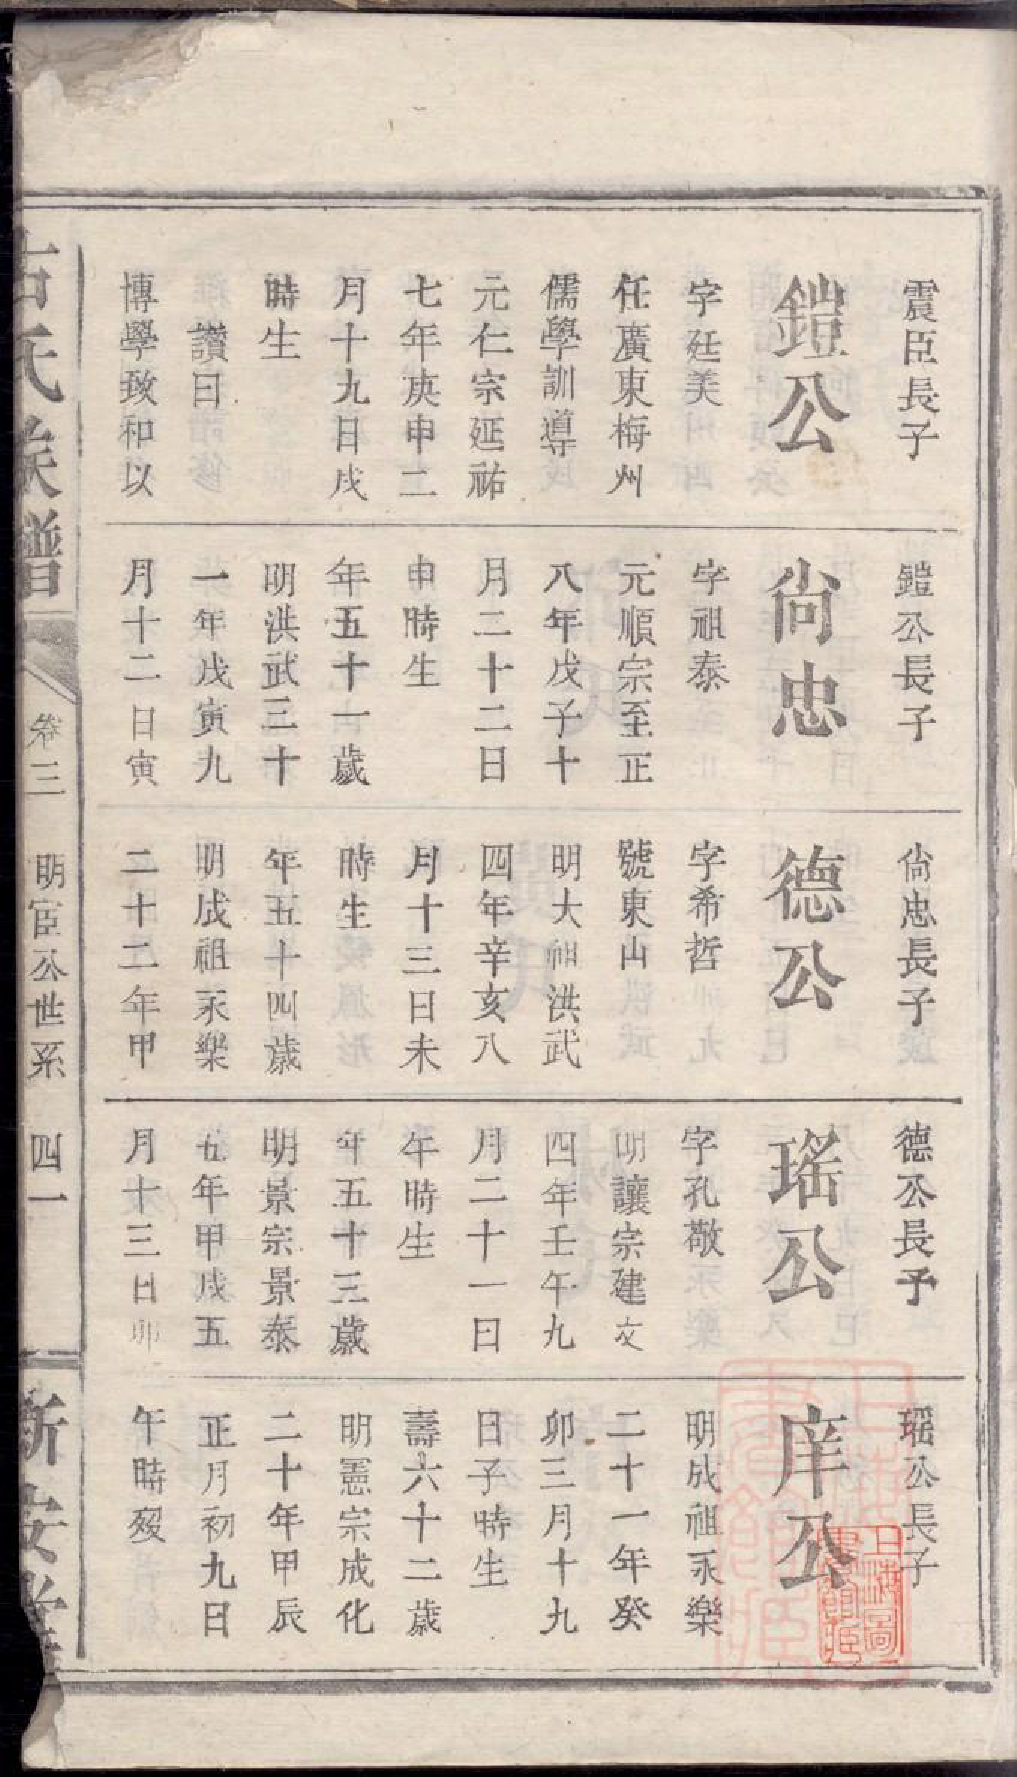 震臣長子
鎧公
字廷美
任廣東梅州
儒學訓導
元仁宗延祐
七年庚申二
月十九日戌
時生
讚曰
博學致和以
鎧公長子
尙忠
字祖泰
元順宗至正
八年戊子十
月二十二日
申時生
年五十一歲
明洪武三十
一年戊寅九
月十二日寅
尙忠長子
德公
字希哲
號東山
明大祖洪武
四年辛亥八
月十三日未
時生
年五十四歲
明成祖永樂
二十二年甲
德公長予
瑤公
字孔敬
明讓宗建文
四年壬午九
月二十一日
午時生
年五十三歲
明景宗景泰
五年甲戌五
月十三日卯
瑶公長子
庠公
明成祖永樂
二十一年癸
卯三月十九
日子時生
壽六十二歲
明憲宗成化
二十年甲辰
正月初九日
午時歿
氏族譜
卷三
明宦公世系
四一
新安堂
上海圖書館藏
上海圖書館藏